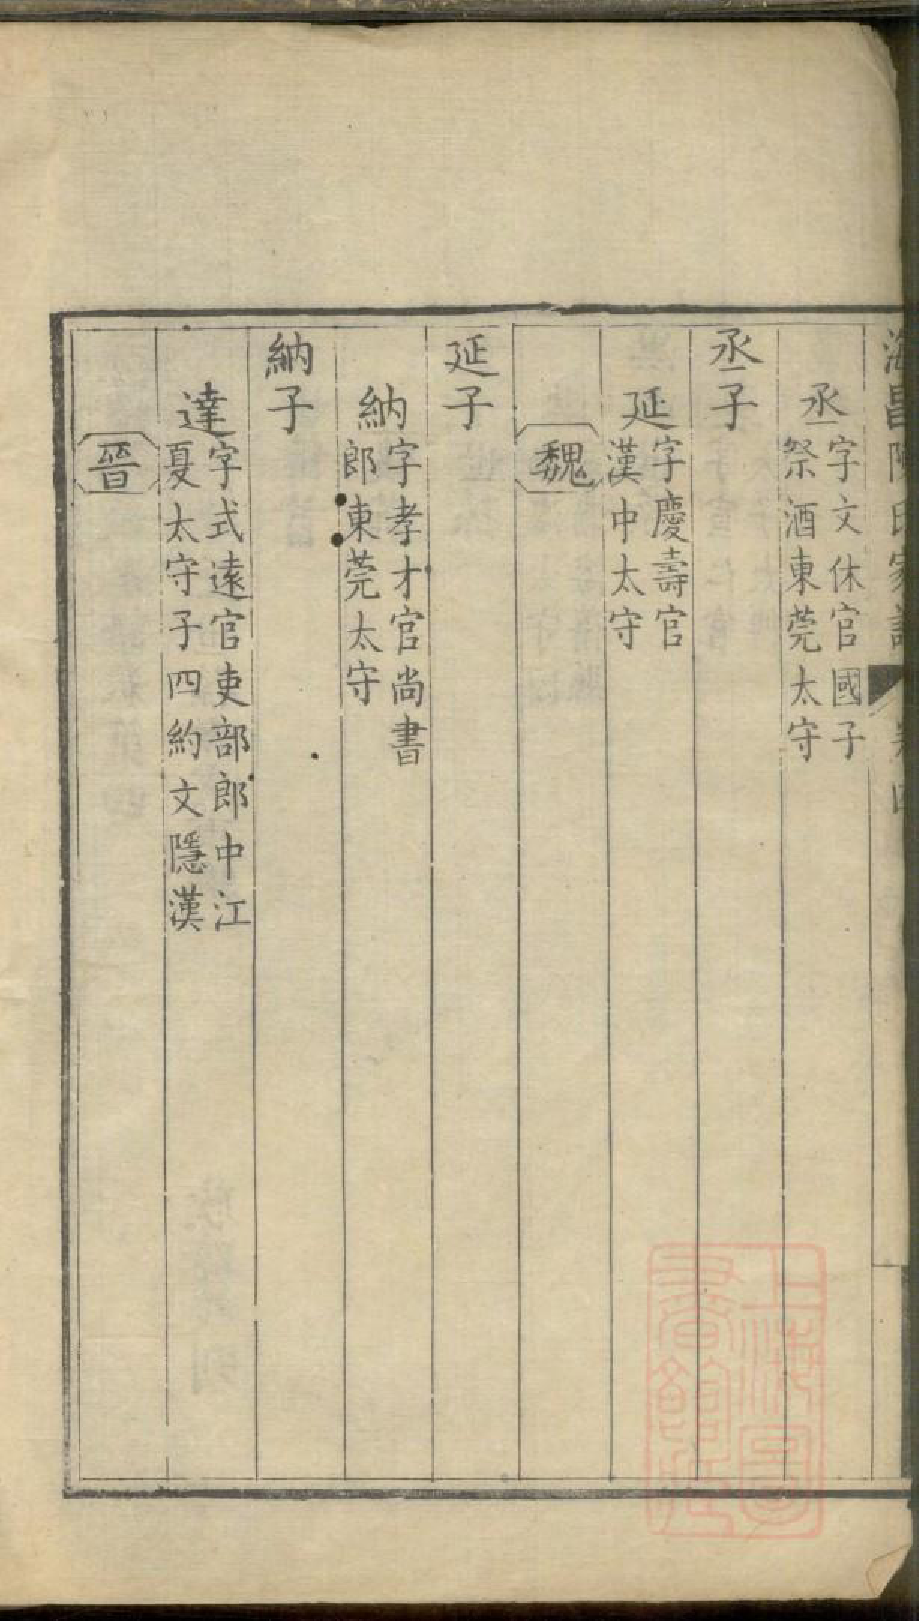 海昌陳氏家譜 卷四
丞 字文休官國子
祭酒東莞太守
丞子
延 字慶壽官
漢中太守
魏
延子
納 字孝才官尚書
郎東莞太守
納子
達 字式遠官吏部郎中江
夏太守子四約文隱漢
晉
上海圖
書館藏